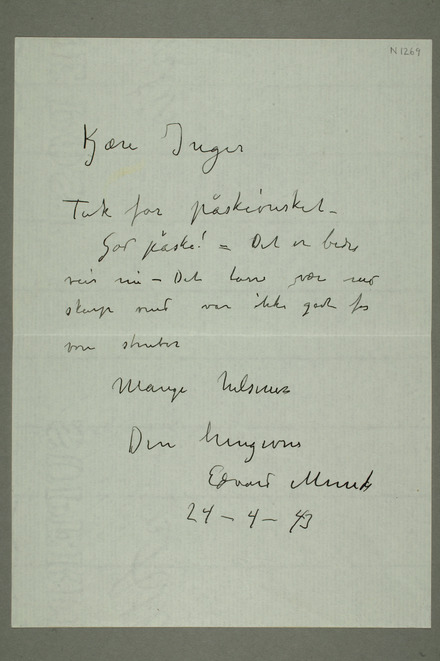 N 1269
Kjære Inger
Tak for påskeønsket –
God påske! – Det er bedre
veir nu – Det tørre veir med
skarp vind var ikke godt for
vore struber
Mange hilsener
Din hengivne
Edvard Munch
24 – 4 – 43